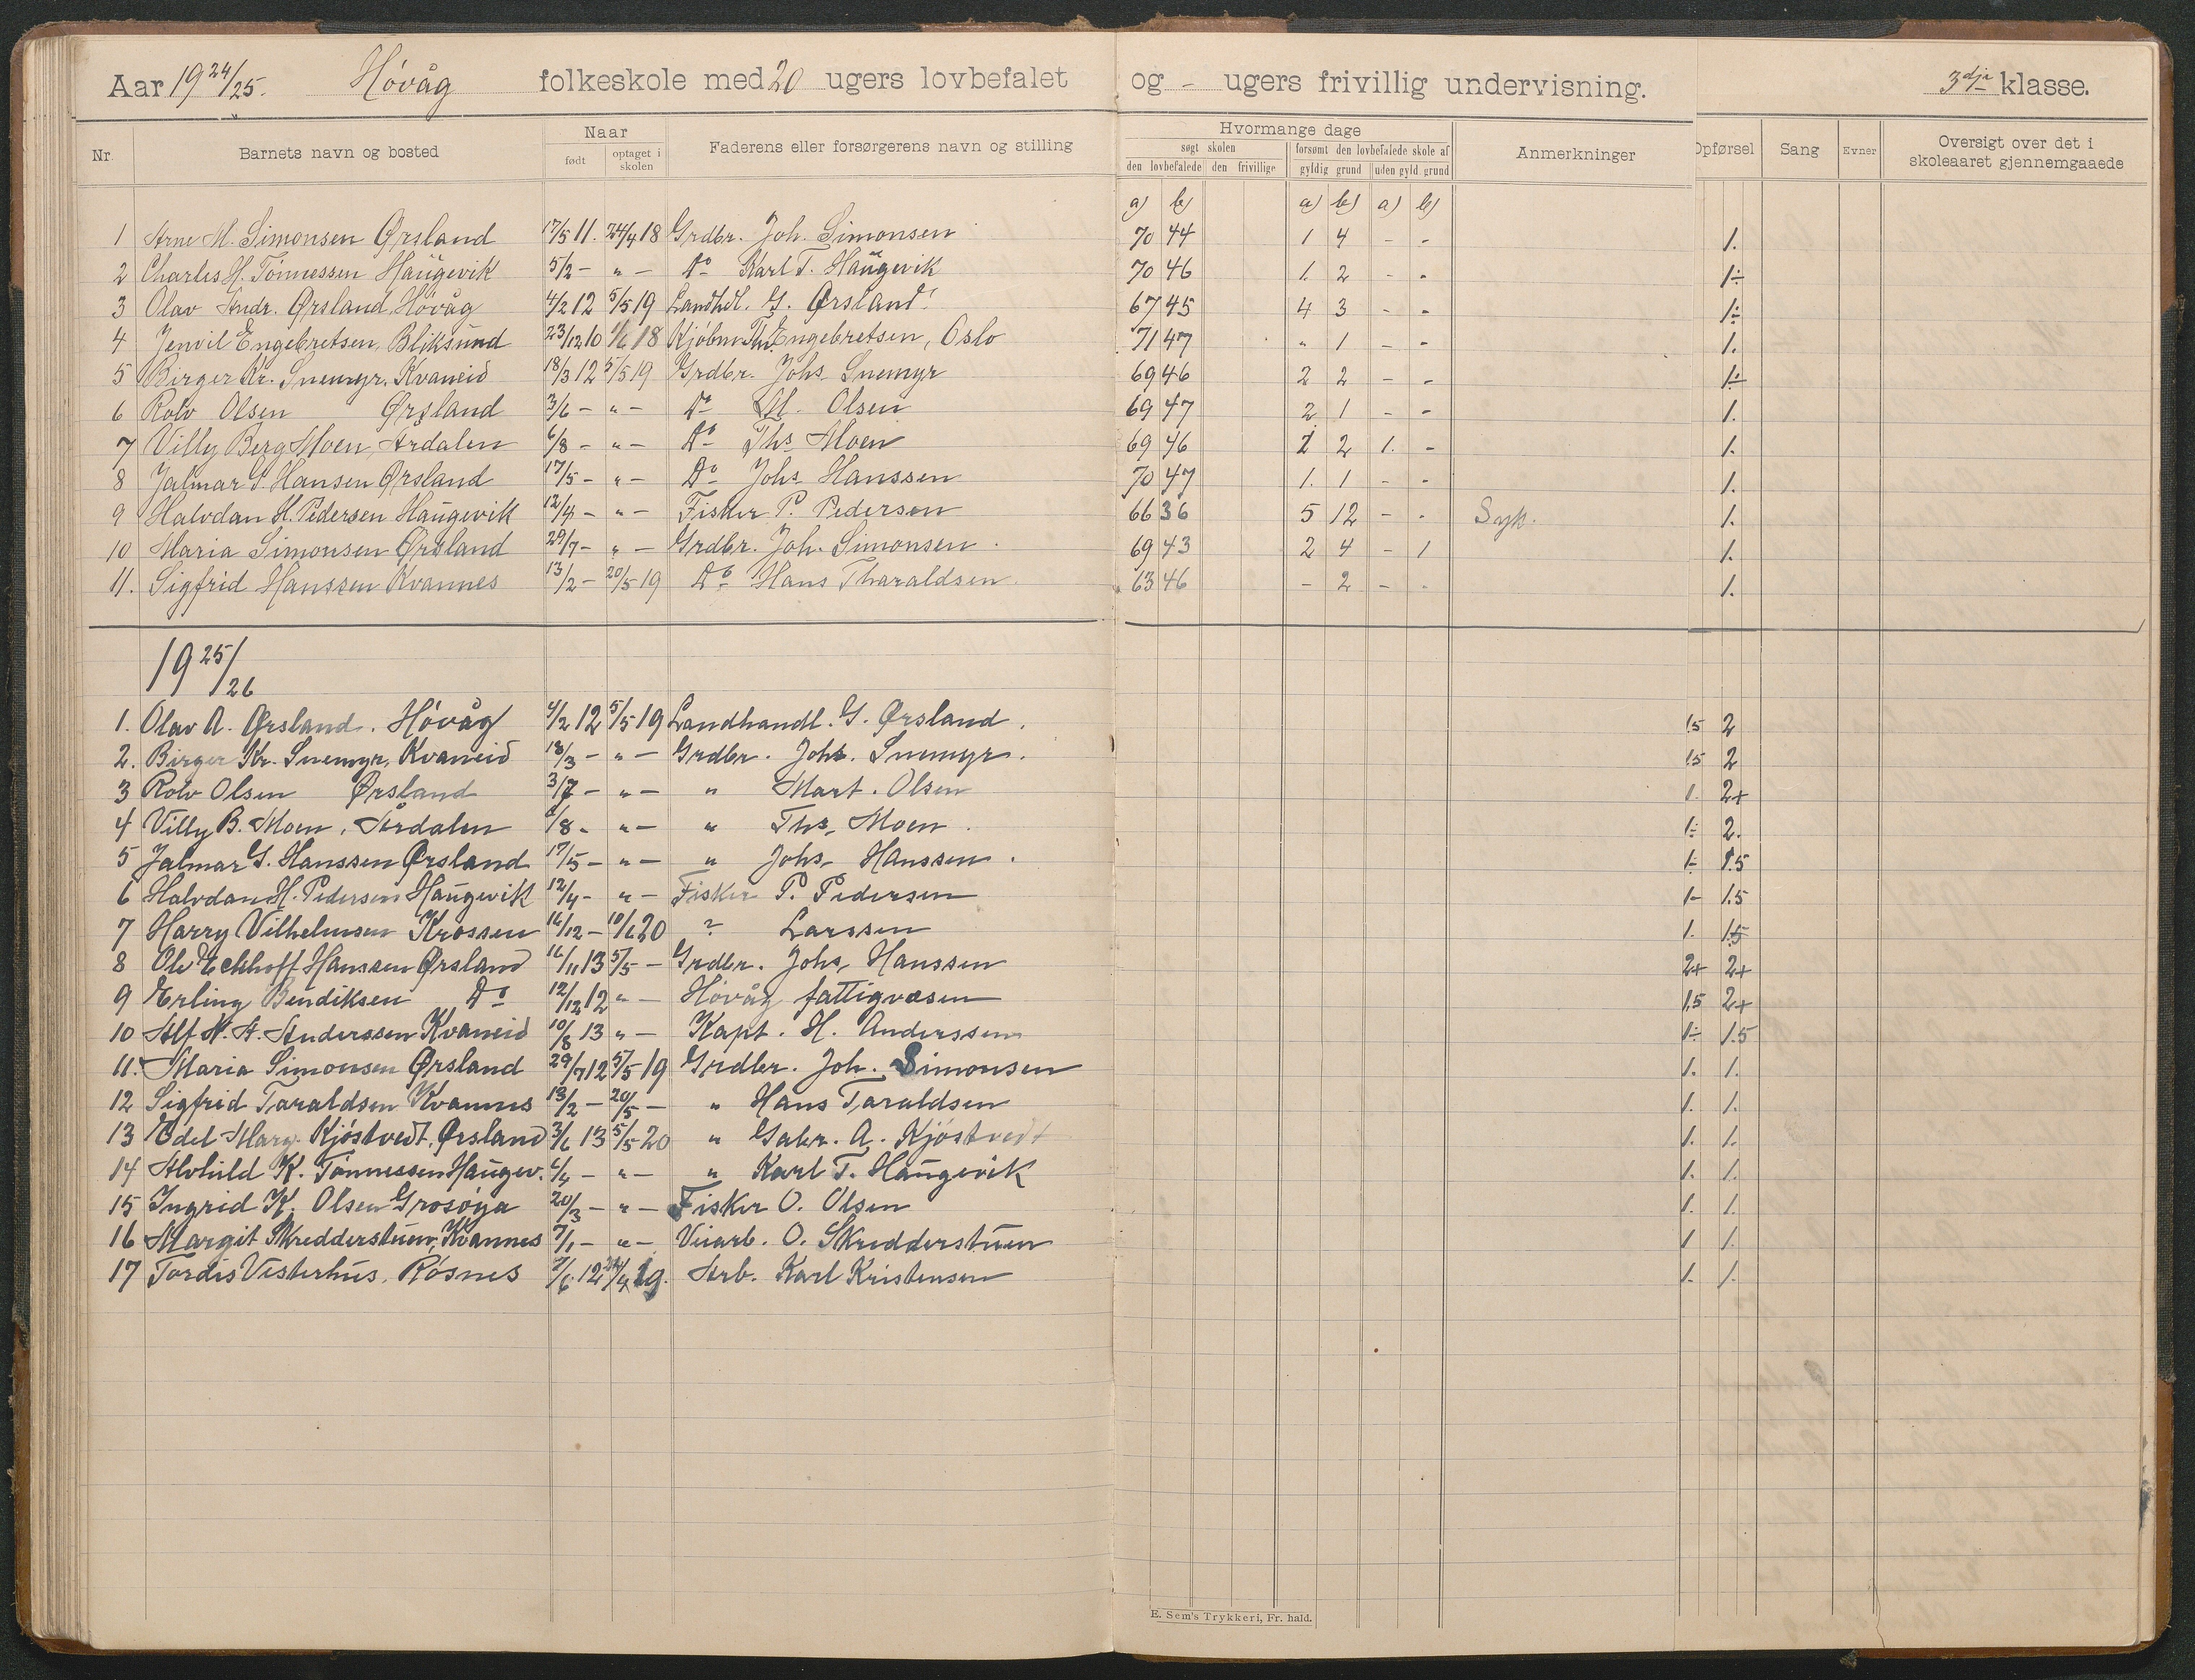 Aar 19 24/25. Høvåg folkeskole med 20 ugers lovbefalet og - ugers frivillig undervisning. 3dje klasse.
Nr. Barnets navn og bosted Naar født optaget i skolen Faderens eller forsørgerens navn og stilling Hvormange dage søgt skolen den lovbefalede den frivillige forsømt den lovbefalede skole af gyldig grund uden gyld grund Anmerkninger Opførsel Sang Evner Oversigt over det i skoleaaret gjennemgaaede
a) b) a) b) a) b)
1 Arne M. Simonsen Ørsland 17/5 11. 24/4 18 Grdbr. Joh. Simonsen 70 44 1 4 - - 1.
2 Charles H. Tønnessen Haŭgevik 5/2 - " - Do Karl T. Haŭgevik 70 46 1. 2 - - 1÷
3 Olav Andr. Ørsland, Høvåg 4/2 12 5/5 19 Landhdl. G. Ørsland 67 45 4 3 - - 1÷
4 Jenvil Engebretsen, Bliksund 23/12 10 1/6 18 Kjøbm Th. Engebretsen, Oslo 71 47 " 1 - - 1.
5 Birger Kr. Snemyr, Kvaneid 18/3 12 5/5 19 Grdbr. Johs. Snemyr 69 46 2 2 - - 1÷
6 Rolv Olsen Ørsland 3/6 - " - Do M. Olsen 69 47 2 1 - - 1.
7 Villy Berg Moen, Årdalen 6/8 - " - Do Ths. Moen 69 46 1 2 1. - 1.
8 Jalmar G. Hansen Ørsland 17/5 - " - Do Johs. Hanssen 70 47 1. 1 - - 1.
9 Halvdan H. Pedersen Haŭgevik 12/4 - " - Fisker P. Pedersen 66 36 5 12 - - Syk. 1.
10 Maria Simonsen Ørsland 29/7 - " - Grdbr. Joh. Simonsen. 69 43 2 4 - 1 1.
11. Sigfrid Hanssen Kvannes 13/2 - 20/5 19 Do Hans Tharaldsen. 63 46 - 2 - - 1.
19 25/26
1. Olav A. Ørsland. Høvåg 4/2 12 5/5 19 Landhandl. G. Ørsland. 1.5 2
2. Birger Kr. Snemyr, Kvaneid 18/3 - " - Grdbr. Johs. Snemyr. 1.5 2
3 Rolv Olsen Ørsland 3/7 - " - " Mart. Olsen 1. 2+
4 Villy B. Moen, Årdalen 6/8 - " - " Ths. Moen. 1÷ 2.
5 Jalmar G. Hanssen Ørsland 17/5 - " - " Johs. Hanssen. 1- 1.5
6 Halvdan H. Pedersen Haŭgevik 12/4 - " - Fisker P. Pedersen 1- 1.5
7 Harry Vilhelmsen Krossen 16/12 - 10/6 20 ? Larssen 1. 1.5
8 Ole Eckhoff Hanssen Ørsland 16/11 13 5/5 - Grdbr. Johs. Hanssen 2+ 2+
9 Erling Bendiksen Do 12/12 12 " - Høvåg fattigvæsen 1.5 2+
10 Alf N. A. Anderssen Kvaneid 10/8 13 " - Kapt. H. Anderssen 1÷ 1.5
11. Maria Simonsen Ørsland 29/7 12 5/5 19 Grdbr. Joh. Simonsen 1. 1.
12 Sigfrid Taraldsen Kvannes 13/2 - 20/5 - " Hans Taraldsen 1. 1.
13 Edel Marg. Kjøstvedt, Ørsland 3/6 13 5/5 20 " Gabr. A. Kjøstvedt 1. 1.
14 Alvhild K. Tønnessen Haŭgev. 6/4 - " - " Karl T. Haŭgevik 1. 1.
15 Ingrid K. Olsen Grosøya 20/3 - " - Fisker O. Olsen 1. 1.
16 Margit Skredderstuen, Kvannes 7/1 - " - Veiarb. O. Skredderstuen 1 1.
17 Tordis Vesterhus, Røsnes 7/6 12 24/4 19. Arb. Karl Kristensen 1- 1.
E. Sem's Trykkeri, Fr. hald.